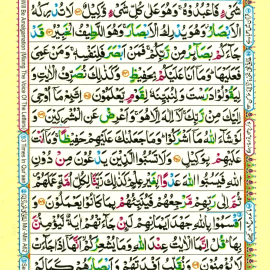 شَيْءٍ فَاعْبُدُوهُ وَهُوَ عَلَىٰ كُلِّ شَيْءٍ وَّكِيلٌ لَا تُدْرِكُهُ
الْاَبْصَارُ وَهُوَ يُدْرِكُ الْاَبْصَارَ وَهُوَ اللَّطِيفُ الْخَبِيرُ قَدْ
جَاءَكُمْ بَصَائِرُ مِنْ رَّبِّكُمْ فَمَنْ اَبْصَرَ فَلِنَفْسِهٖ وَمَنْ عَمِيَ
فَعَلَيْهَا وَمَا اَنَا عَلَيْكُمْ بِحَفِيظٍ وَكَذٰلِكَ نُصَرِّفُ الْاٰيٰتِ وَ
لِيَقُولُوا دَرَسْتَ وَلِنُبَيِّنَهٗ لِقَوْمٍ يَّعْلَمُونَ اِتَّبِعْ مَا اُوحِيَ
اِلَيْكَ مِنْ رَّبِّكَ لَا اِلٰهَ اِلَّا هُوَ وَاَعْرِضْ عَنِ الْمُشْرِكِينَ وَ
لَوْ شَاءَ اللّٰهُ مَا اَشْرَكُوا وَمَا جَعَلْنٰكَ عَلَيْهِمْ حَفِيظًا وَمَا اَنْتَ
عَلَيْهِمْ بِوَكِيلٍ وَلَا تَسُبُّوا الَّذِينَ يَدْعُونَ مِنْ دُونِ
اللّٰهِ فَيَسُبُّوا اللّٰهَ عَدْوًا بِغَيْرِ عِلْمٍ كَذٰلِكَ زَيَّنَّا لِكُلِّ اُمَّةٍ عَمَلَهُمْ
ثُمَّ اِلٰى رَبِّهِمْ مَّرْجِعُهُمْ فَيُنَبِّئُهُمْ بِمَا كَانُوا يَعْمَلُونَ وَ
اَقْسَمُوا بِاللّٰهِ جَهْدَ اَيْمَانِهِمْ لَئِنْ جَاءَتْهُمْ اٰيَةٌ لَّيُؤْمِنُنَّ
بِهَا قُلْ اِنَّمَا الْاٰيٰتُ عِنْدَ اللّٰهِ وَمَا يُشْعِرُكُمْ اَنَّهَا اِذَا جَاءَتْ
لَا يُؤْمِنُونَ وَنُقَلِّبُ اَفْئِدَتَهُمْ وَاَبْصَارَهُمْ كَمَا لَمْ